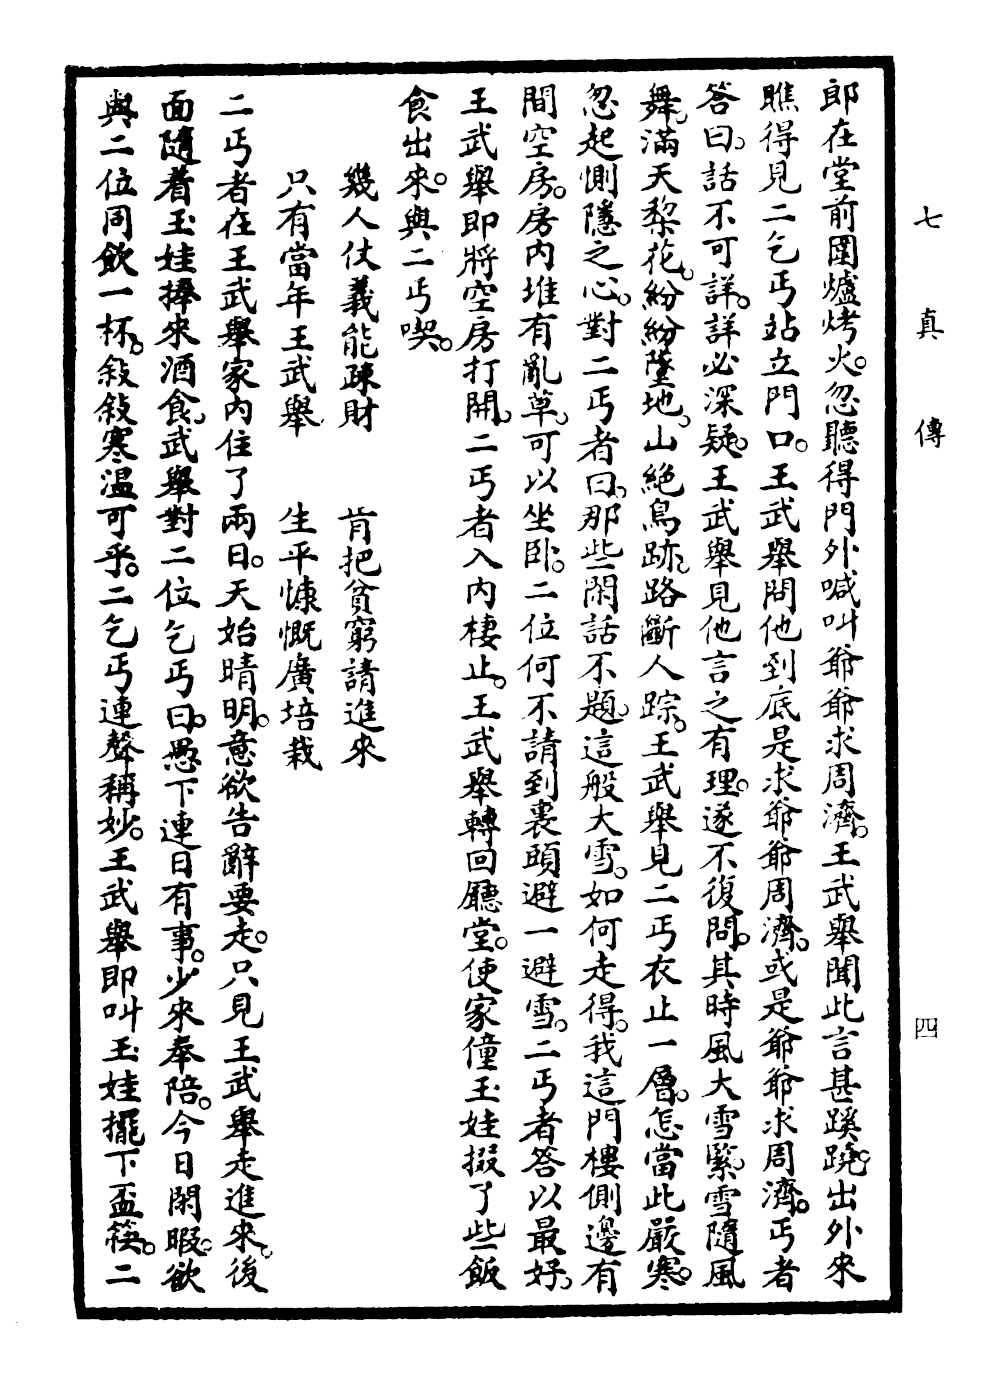 七真傳
四
郎在堂前圍爐烤火。忽聽得門外喊叫爺爺求周濟。王武舉聞此言甚蹊蹺。出外來
瞧得見二乞丐站立門口。王武舉問他到底是求爺爺周濟。或是爺爺求周濟。丐者
答曰。話不可詳。詳必深疑。王武舉見他言之有理。遂不復問。其時風大雪緊。雪隨風
舞。滿天梨花。紛紛墜地。山絕鳥跡。路斷人踪。王武舉見二丐衣止一層。怎當此嚴寒。
忽起惻隱之心。對二丐者曰。那些閑話不題。這般大雪。如何走得。我這門樓側邊有
間空房。房內堆有亂草。可以坐卧。二位何不請到裏頭避一避雪。二丐者答以最好。
王武舉即將空房打開。二丐者入內棲止。王武舉轉回廳堂。使家僮玉娃掇了些飯
食出來。與二丐喫。
幾人仗義能疎財　肯把貧窮請進來
只有當年王武舉　生平慷慨廣培栽
二丐者在王武舉家內住了兩日。天始晴明。意欲告辭要走。只見王武舉走進來。後
面隨着玉娃捧來酒食。武舉對二位乞丐曰。愚下連日有事。少來奉陪。今日閑暇。欲
與二位同飲一杯。敍敍寒溫可乎。二乞丐連聲稱妙。王武舉即叫玉娃擺下盃筷。二